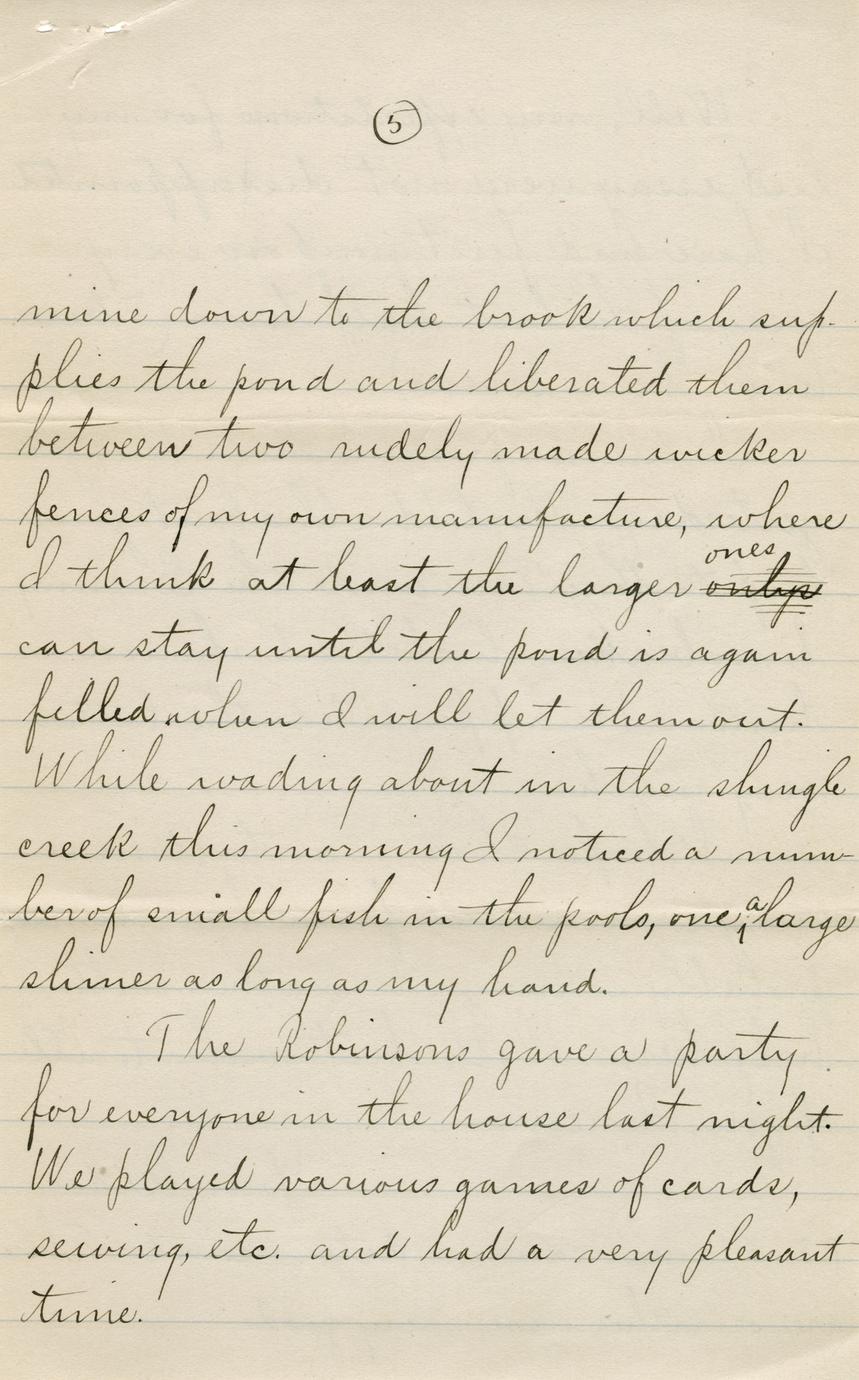 5
mine down to the brook which sup-
plies the pond and liberated them
between two rudely made wicker
fences of my own manufacture, where
I think at least the larger ones
can stay until the pond is again
filled when I will let them out.
While wading about in the shingle
creek this morning I noticed a num-
ber of small fish in the pools, one, a large
shiner as long as my hand.
The Robinsons gave a party
for everyone in the house last night.
We played various games of cards,
sewing, etc. and had a very pleasant
time.